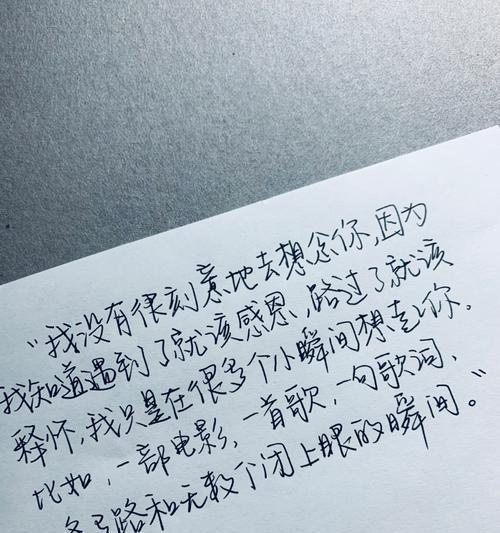 “我没有很刻意地去想念你,因为
我知道遇到了就该感恩,路过了就该
释怀,我只是在很多个小瞬间想起你。
比如,一部电影,一首歌,一句歌词,
马路和无数个闭上眼的瞬间。”